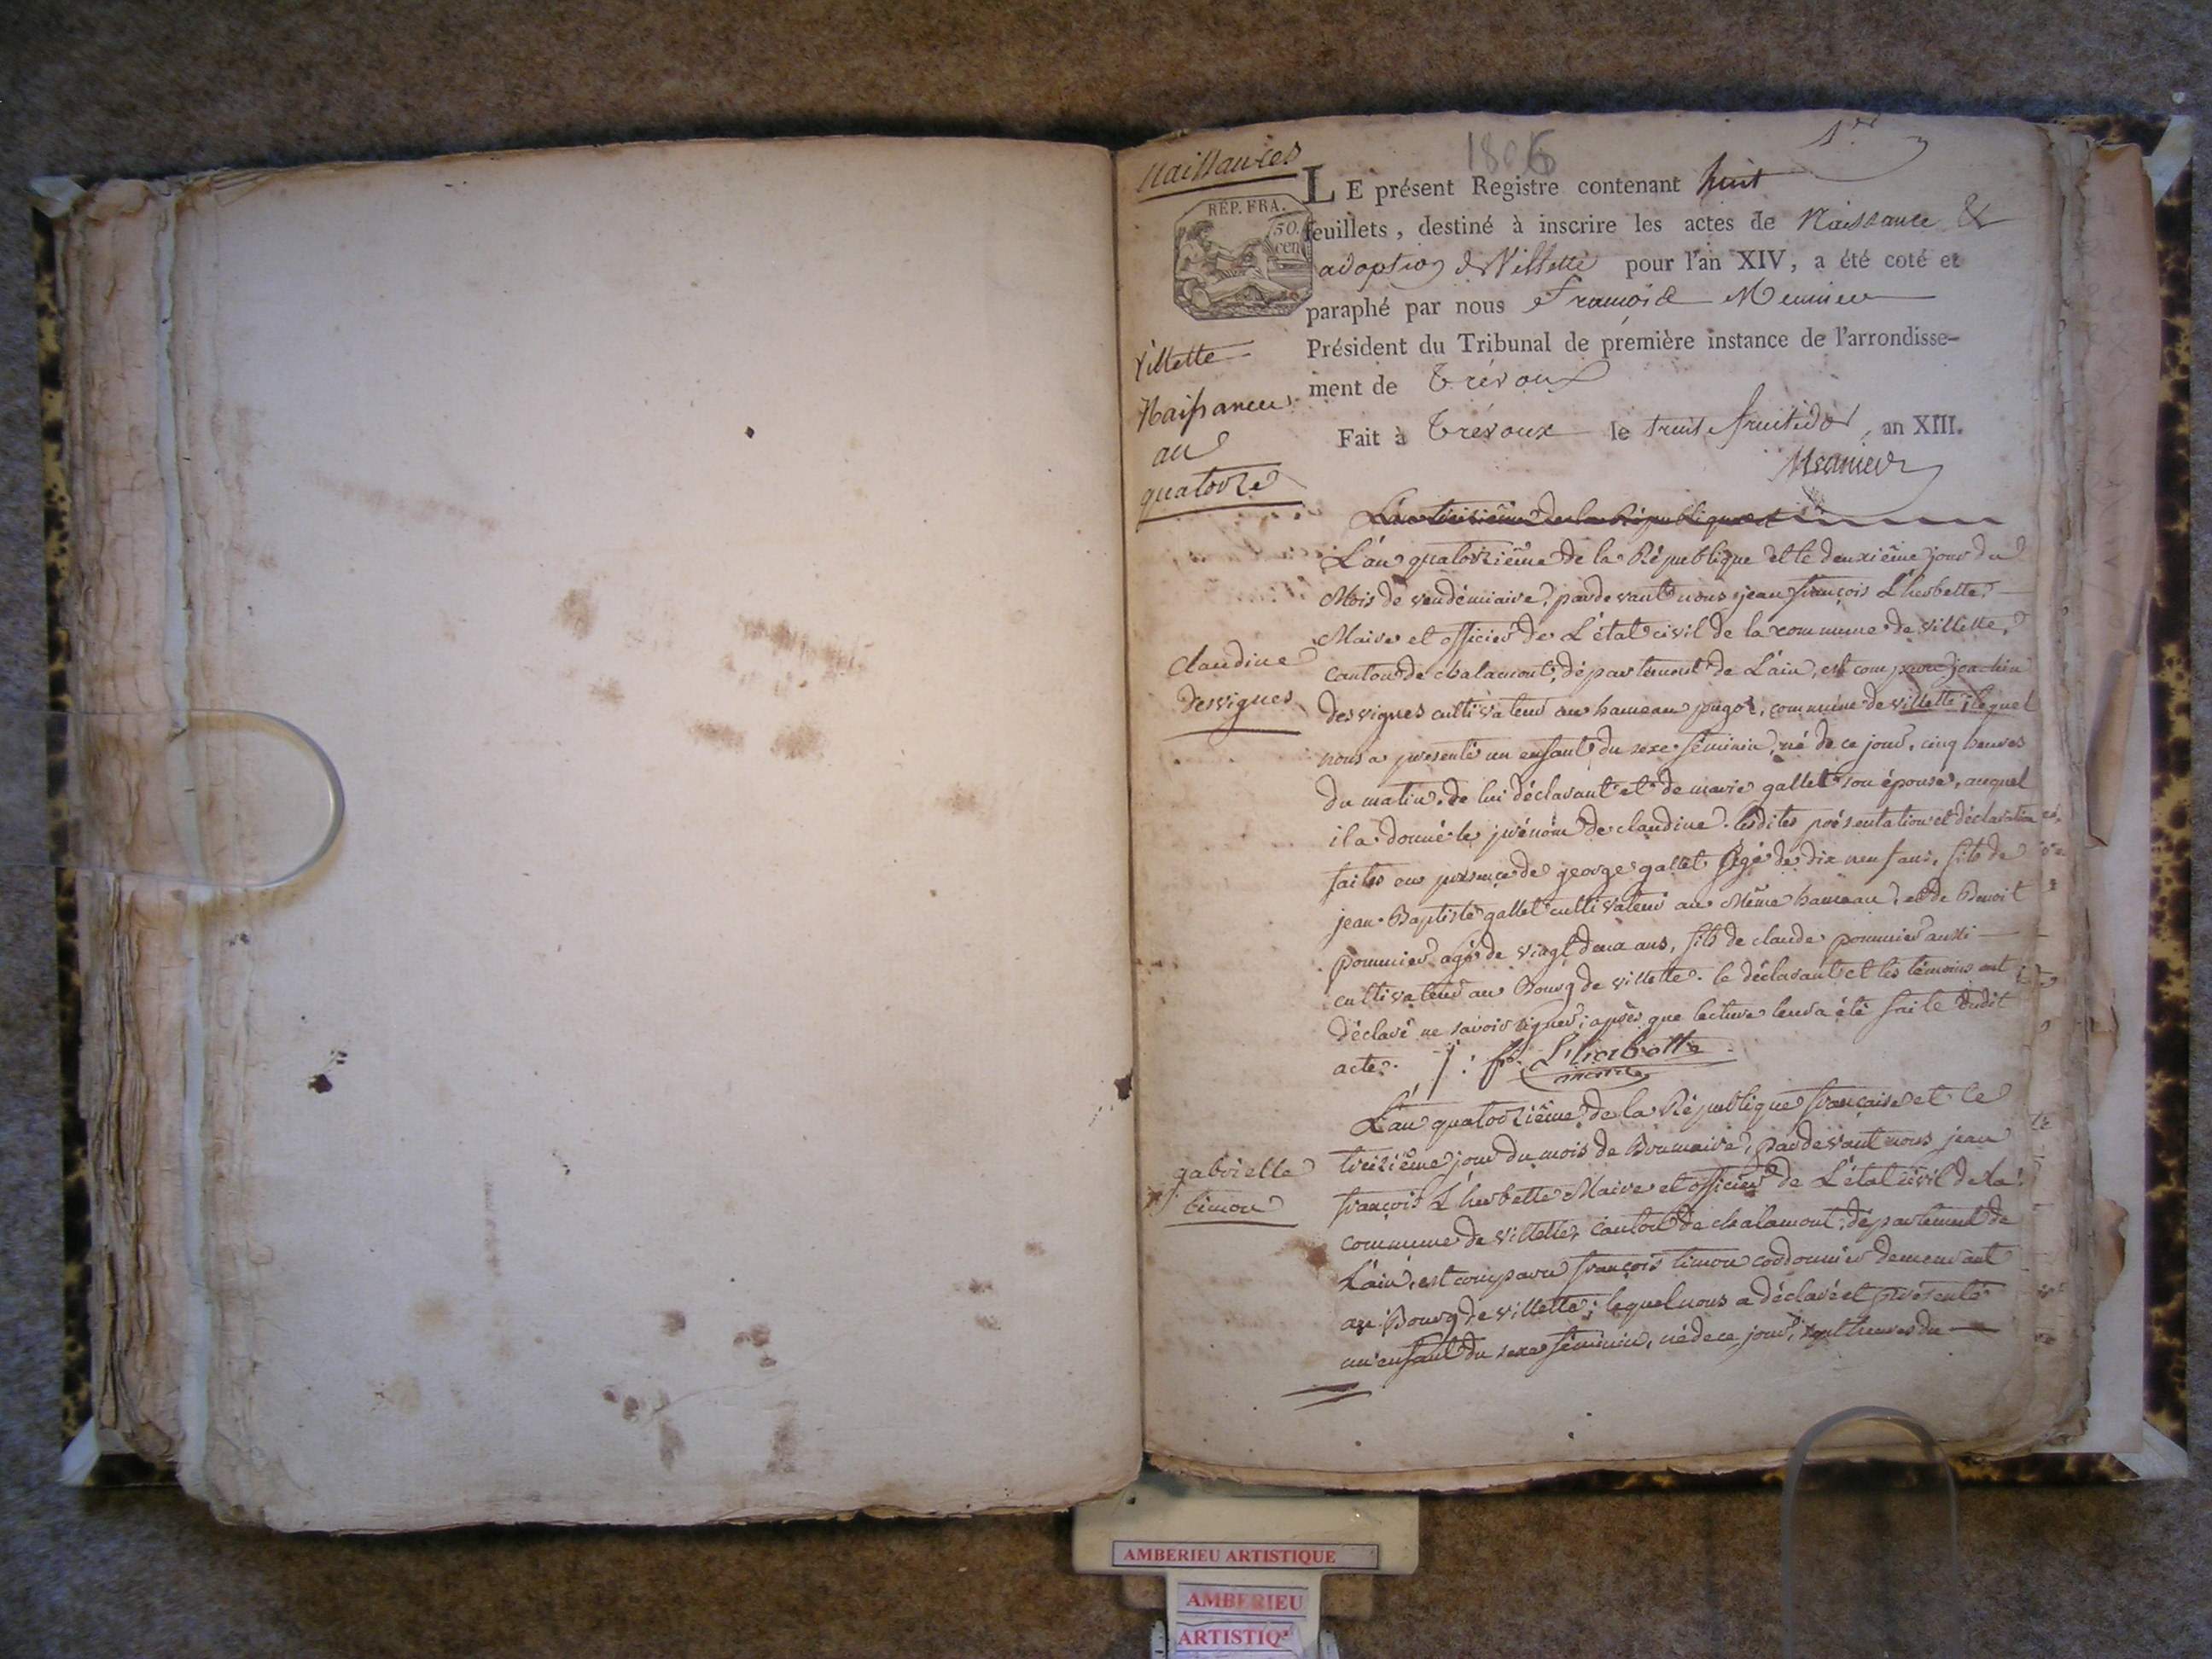 Naissances
1806
1.er
RÉP. FRA.
50.
cen
LE présent Registre contenant huit
feuillets, destiné à inscrire les actes de Naissance &
adoption de Villette pour l'an XIV, a été coté et
paraphé par nous François Meunier
Président du Tribunal de première instance de l'arrondisse-
ment de Trévoux
Fait à Trévoux le fruitidor, an XIII.
Meunier
Villette
Naissances
an
quatorze
L'an treizième de la République et
L'an quatorzième de la République et le deuxième jour du
Mois de vendémiaire, pardevant nous jean françois L'herbette,
Maire et officier de L'état civil de la commune de villette,
canton de chalamont, département de L'ain, est comparu joachin
desvignes cultivateur au hameau, commune de villette, lequel
nous a présenté un enfant du sexe féminin, né de ce jour, cinq heures
du matin, de lui déclarant et de marie gallet son épouse, auquel
il a donné le prénom de claudine. lesdites présentation et déclaration
faites en présence de george gallet âgé de dix neuf ans, fils de
jean-Baptiste gallet cultivateur au Même hameau, et de Benoit
pommier agé de vingt deux ans, fils de claude pommier aussi
cultivateur au Bourg de villette. le déclarant et les témoins ont
déclaré ne savoir signer, après que lecture leur a été faite dudit
acte. L'herbette
maire
claudine
desvignes
L'an quatorzième de la République française et le
treizième jour du mois de Brumaire, pardevant nous jean
françois L'herbette Maire et officier de L'état civil de la
commune de villette, canton de chalamont, département de
L'ain, est comparu françois timon cordonnier demeurant
au Bourg de villette; lequel nous a déclaré et présenté
un enfant du sexe féminin, né de ce jour, sept heures du
gabrielle
timon
AMBERIEU ARTISTIQUE
AMBERIEU
ARTISTIQ